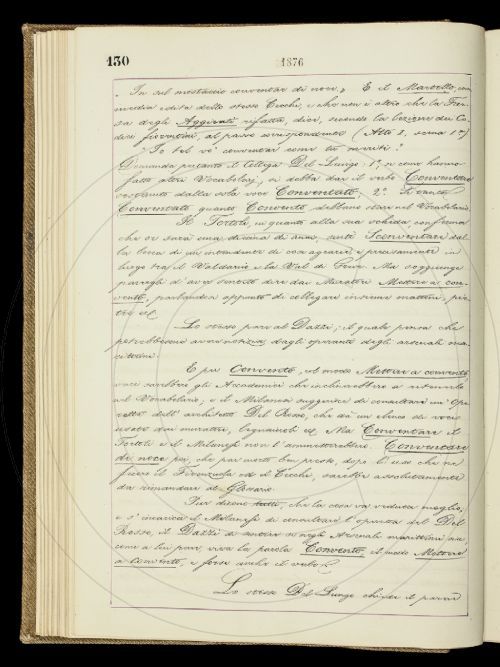 130
1876
„ In sul mostaccio conventar di noci. „ E il Martello, com
media edita dello stesso Cecchi, e che non è altro che la Fter-
sa degli Aggirati rifatta, dice, secondo la lezione dei Co-
dici fiorentini, al passo corrispondente (Atto I, scena 1ª)
" Io tel ve' conventar come tu meriti?
Domanda pertanto il Collega Del-Lungo: 1º, se come hanno
fatto altri Vocabolarj, si debba dar il verbo Conventare
restando dalla sola voce Conventato; 2º Se tanto
Conventato quanto Convento debbano stare nel Vocabolario.
Il Tortoli, in quanto alla sua scheda, conferma
che or sarà una diecina di anni, sentì Sconventare dal-
la bocca di un intendente di cose agrarie, e precisamente in
luogo tra il Valdarno e la Val di Greve. Ma soggiunge
pareggli di aver sentito dire dai Muratori Mettere a con-
vento, parlandosi appunto di collegare insieme mattoni, pie-
tre ec.
Lo stesso pare al Dazzi; il quale pensa che
potrebbesene aver notizia dagli operanti degli arsenali ma-
rittimi.
E per Convento, il modo Mettere a convento,
vari sarebbero gli Accademici che inclinerebbero a ritenerlo
nel Vocabolario, e il Milanesi suggerisce di consultare un'Ope-
retta dell'architetto Del Rosso, che dà un elenco di voci
usate dai muratori, legnaiuoli ec. Ma Conventare il
Tortoli e il Milanesi non l'ammetterebbero. Conventare
di noce poi, che par usato ben presto, dopo l'uso che ne
fecero il Firenzuola ed il Cecchi, sarebbe assolutamente
da rimandare al Glossario.
Pur dicono tutti, che la cosa va veduta meglio,
e s'incarica il Milanesi di consultare l'operetta del Del
Rosso, il Dazzi di sentire se negli Arsenali marittimi, sic-
come a lui pare, viva la parola Convento, il modo Mettere
a convento, e forse anche il verbo.
Lo stesso Del Lungo chiede il parere